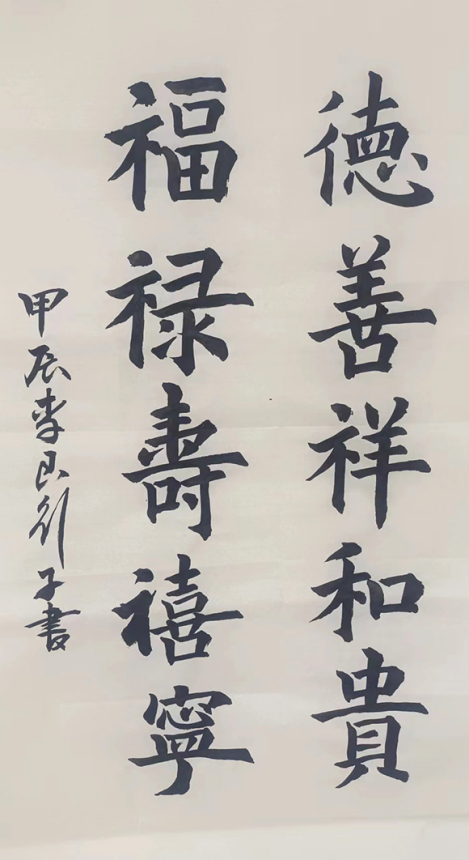 德善祥和貴
福禄壽禧寧
甲辰李良剑子書